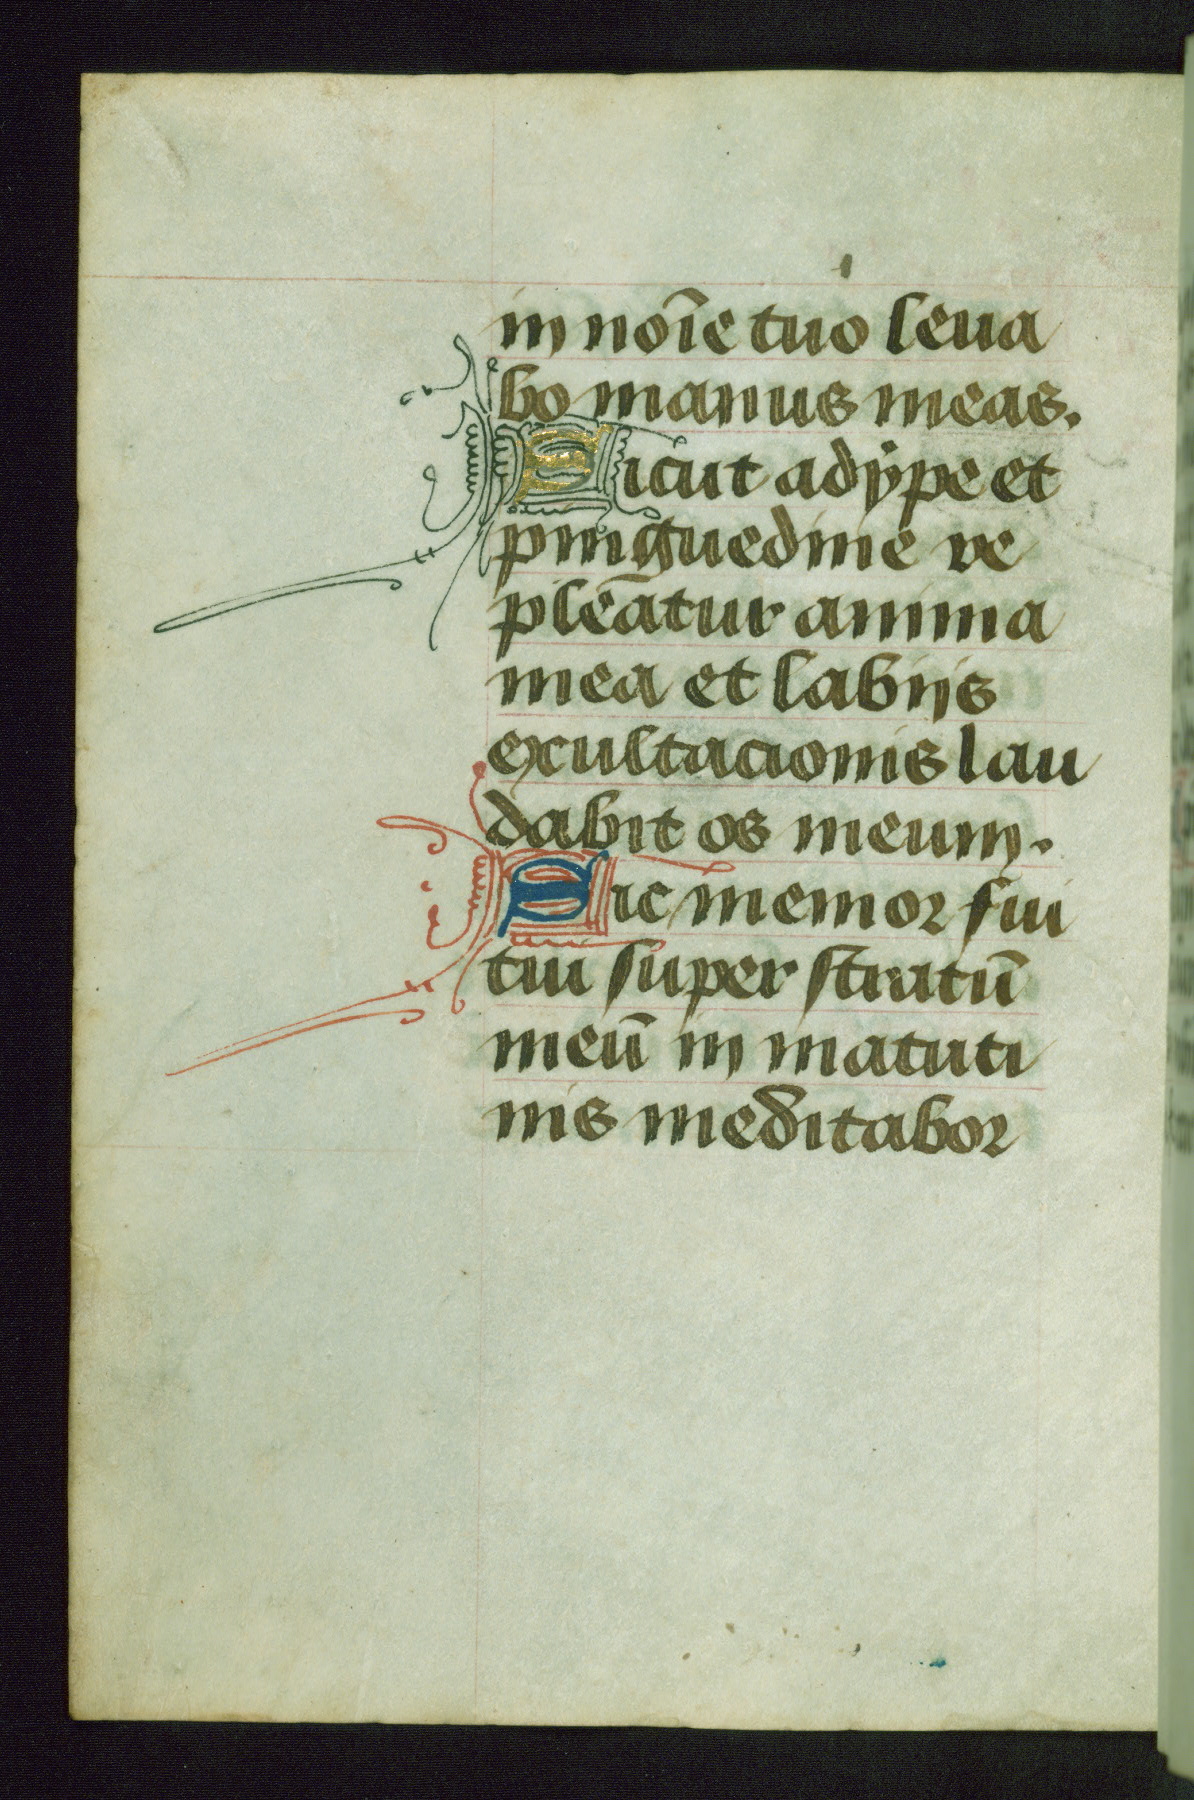 in noīe tuo leua
bo manus meas.
Sicut adÿpe et
pinguedine re
pleātur anima
mea et labijs
exultacionis lau
dabit os meum.
Sic memor fui
tui super stratū
meū in matuti
nis meditabor